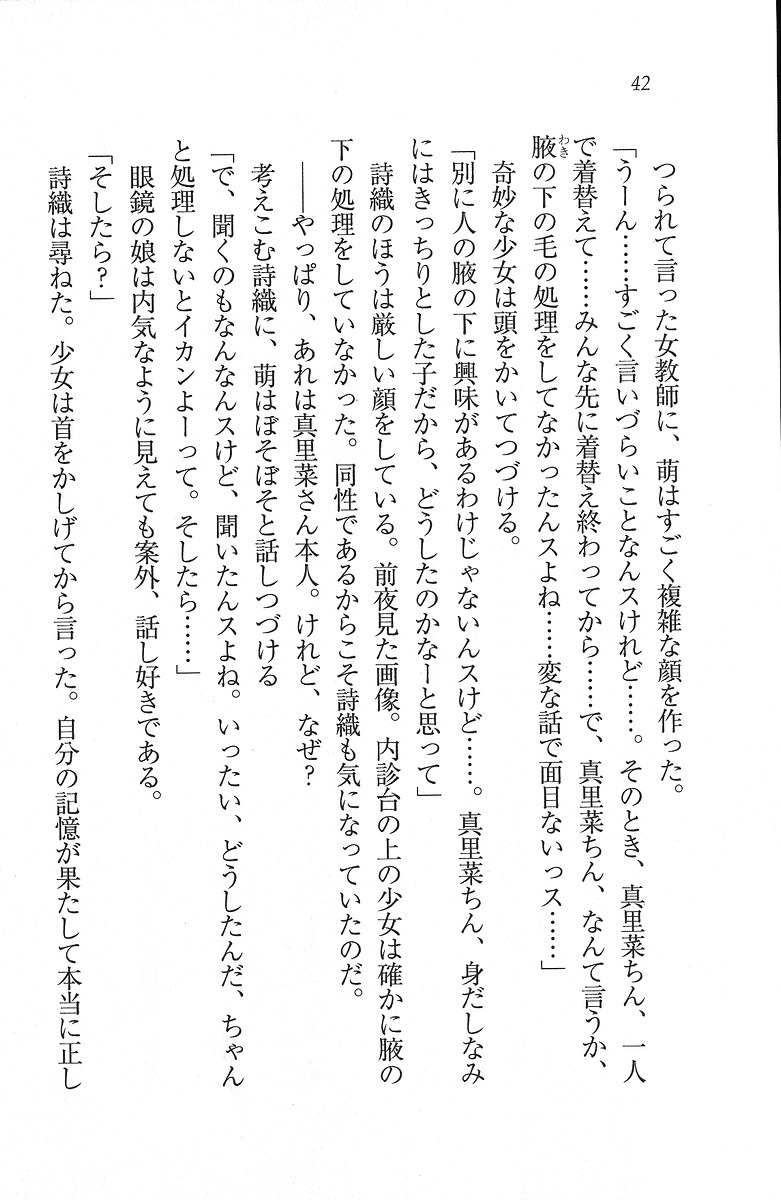 42
つられて言った女教師に、萌はすごく複雑な顔を作った。
「うーん……すごく言いづらいことなんスけれど……。そのとき、真里菜ちん、一人
で着替えて……みんな先に着替え終わってから……で、真里菜ちん、なんて言うか、
腋の下の毛の処理をしてなかったんスよね……変な話で面目ないっス……」
わき
奇妙な少女は頭をかいてつづける。
「別に人の腋の下に興味があるわけじゃないんスけど……。真里菜ちん、身だしなみ
にはきっちりとした子だから、どうしたのかなーと思って」
詩織のほうは厳しい顔をしている。前夜見た画像。内診台の上の少女は確かに腋の
下の処理をしていなかった。同性であるからこそ詩織も気になっていたのだ。
――やっぱり、あれは真里菜さん本人。けれど、なぜ？
考えこむ詩織に、萌はぼそぼそと話しつづける
「で、聞くのもなんなんスけど、聞いたんスよね。いったい、どうしたんだ、ちゃん
と処理しないとイカンよーって。そしたら……」
眼鏡の娘は内気なように見えても案外、話し好きである。
「そしたら？」
詩織は尋ねた。少女は首をかしげてから言った。自分の記憶が果たして本当に正し